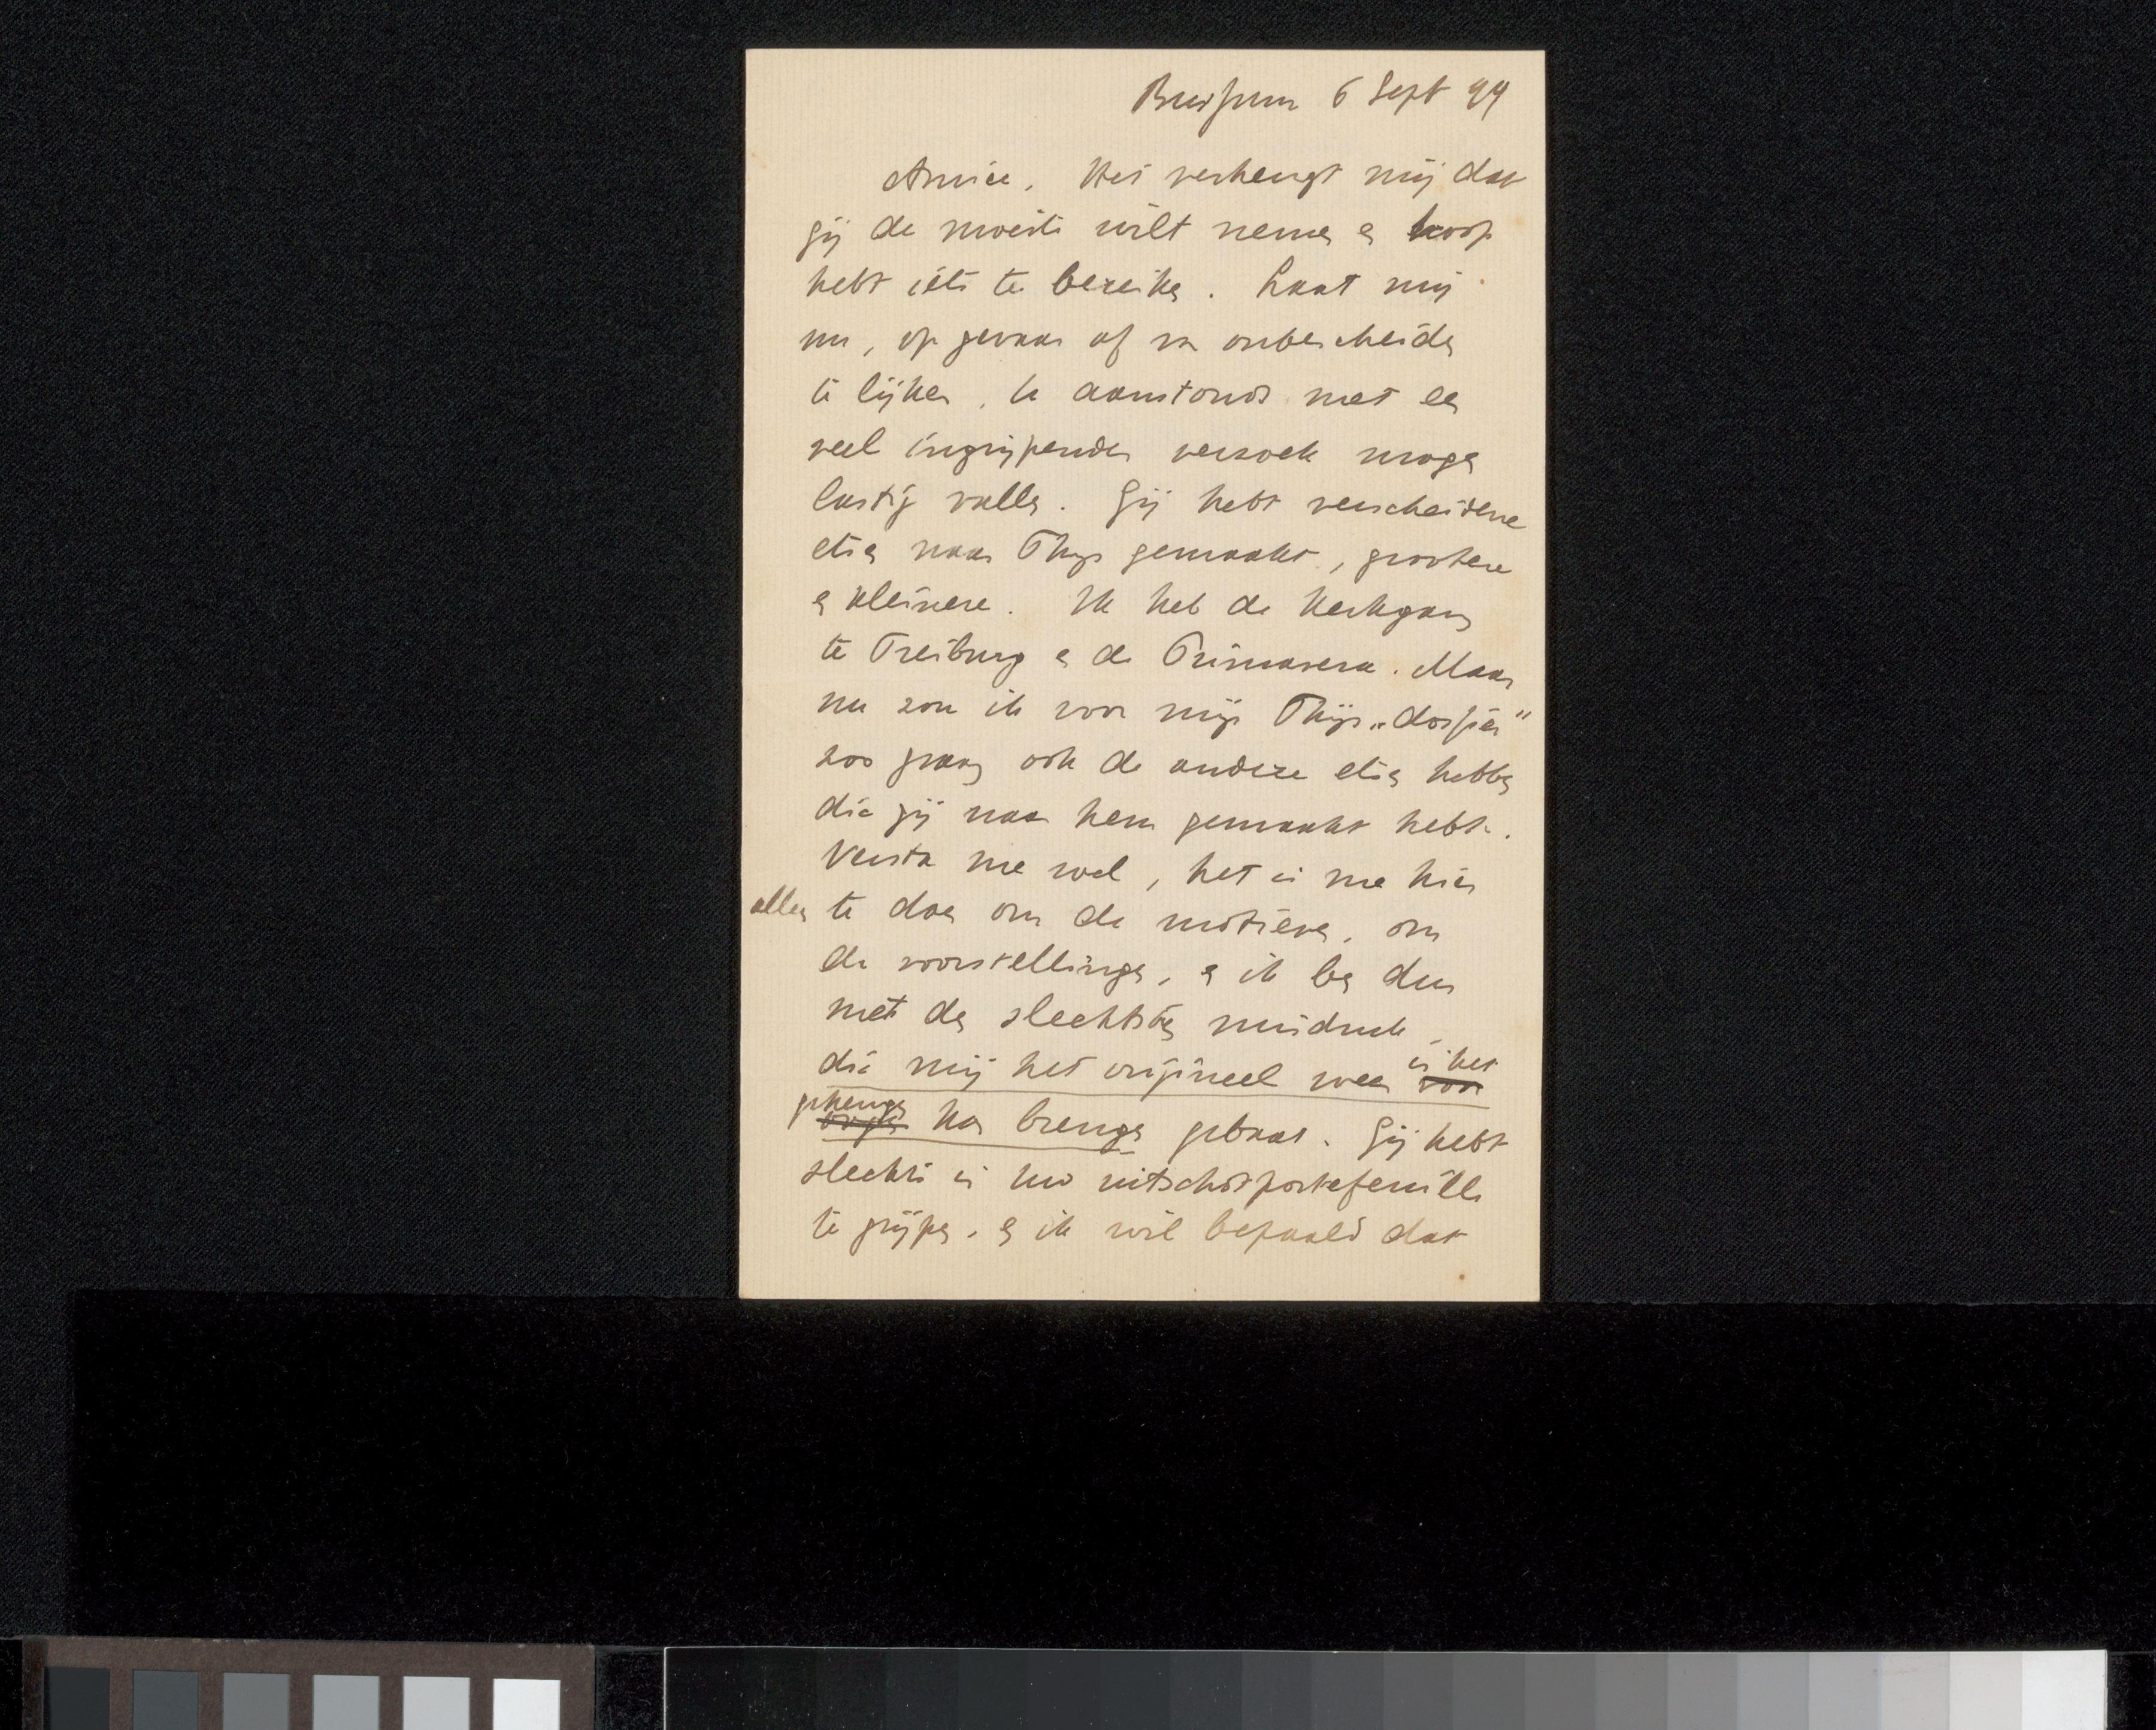 Bussum 6 Sept 99
Amice. Het verheugt mij dat
gij de moeite wilt nemen en hoop
hebt iets te bereiken. Laat mij
nu, op gevaar af van onbescheiden
te lijken, U aanstonds met een
veel ingrijpender verzoek mogen
lastig vallen. Gij hebt verscheidene
etsen naar Thijs gemaakt, grootere
en kleinere. Ik heb de Kerkgang
te Freiburg en de Primavera. Maar
nu zou ik voor mijn Thijs „dossier"
zoo graag ook de andere etsen hebben
die gij naar hem gemaakt hebt.
Versta me wel, het is me hier
alleen te doen om de motieven, om
de voorstellingen, en ik ben dus
met den slechtsten misdruk
die mij het origineel weer voor in het
oogen geheugen kan brengen gebaat. Gij hebt
slechts in uw uitschotportefeuille
te grijpen, en ik wil bepaald dat